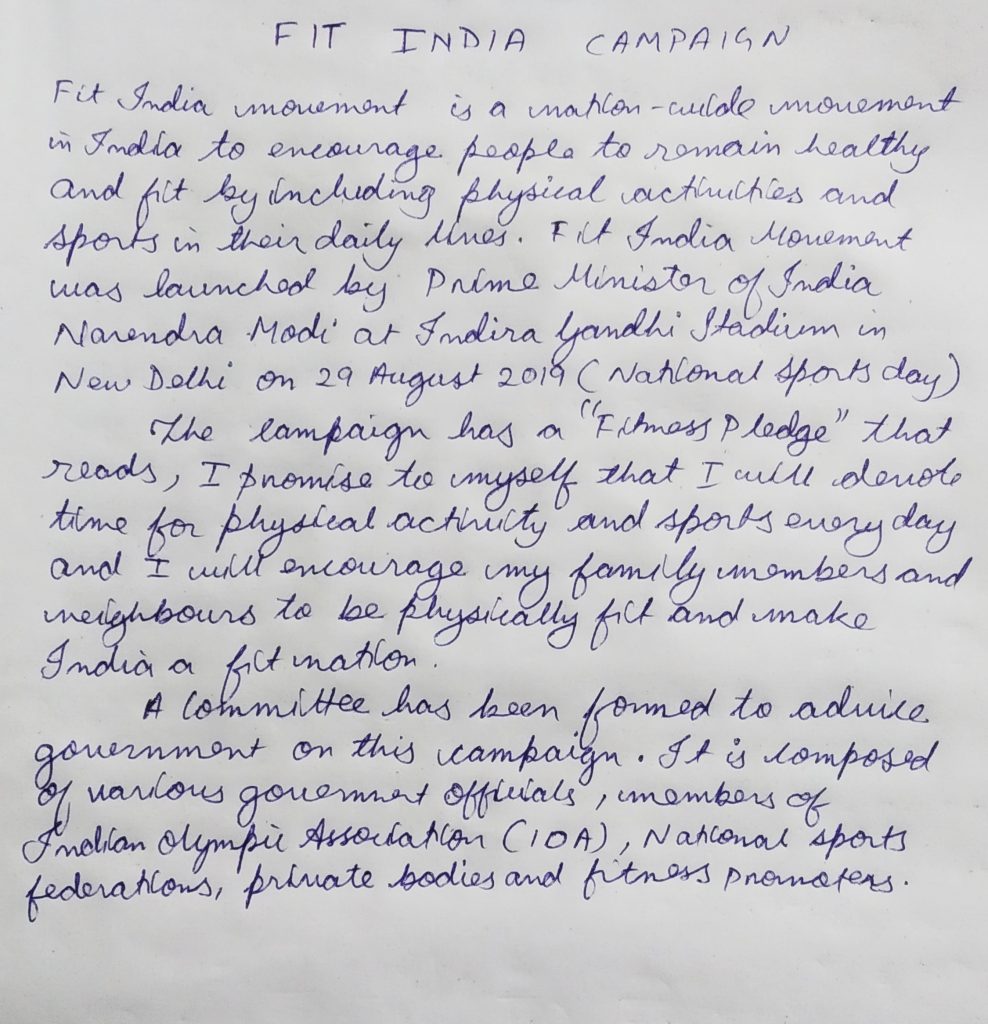 FIT INDIA CAMPAIGN
Fit India movement is a nation-wide movement
in India to encourage people to remain healthy
and fit by including physical activities and
sports in their daily lives. Fit India Movement
was launched by Prime Minister of India
Narendra Modi at Indira Gandhi Stadium in
New Delhi on 29 August 2019 (National sports day)
The campaign has a "Fitness Pledge" that
reads, I promise to myself that I will devote
time for physical activity and sports every day
and I will encourage my family members and
neighbours to be physically fit and make
India a fit nation.
A Committee has been formed to advice
government on this campaign. It is composed
of various government officials, members of
Indian Olympic Association (IOA), National sports
federations, private bodies and fitness promoters.